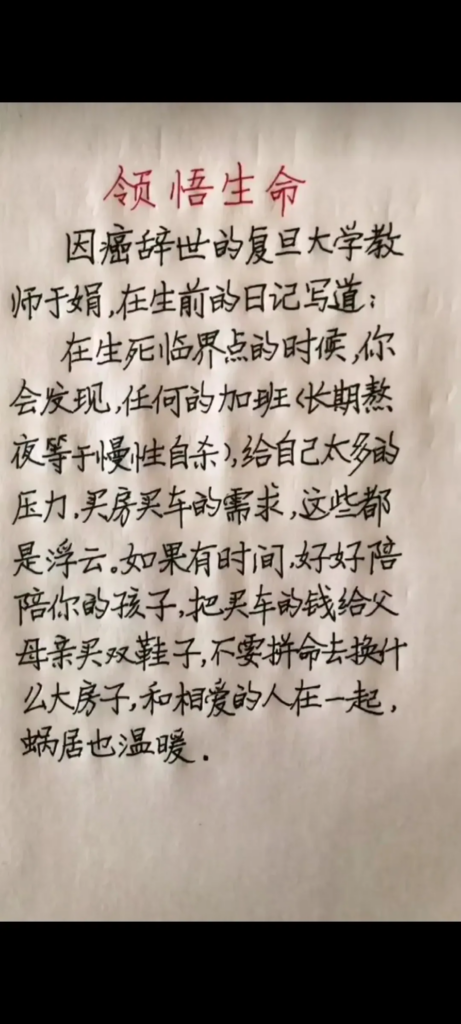 领悟生命
因癌辞世的复旦大学教
师于娟,在生前的日记写道:
在生死临界点的时候,你
会发现,任何的加班(长期熬
夜等于慢性自杀),给自己太多的
压力,买房买车的需求,这些都
是浮云。如果有时间,好好陪
陪你的孩子,把买车的钱给父
母亲买双鞋子,不要拼命去换什
么大房子,和相爱的人在一起,
蜗居也温暖.